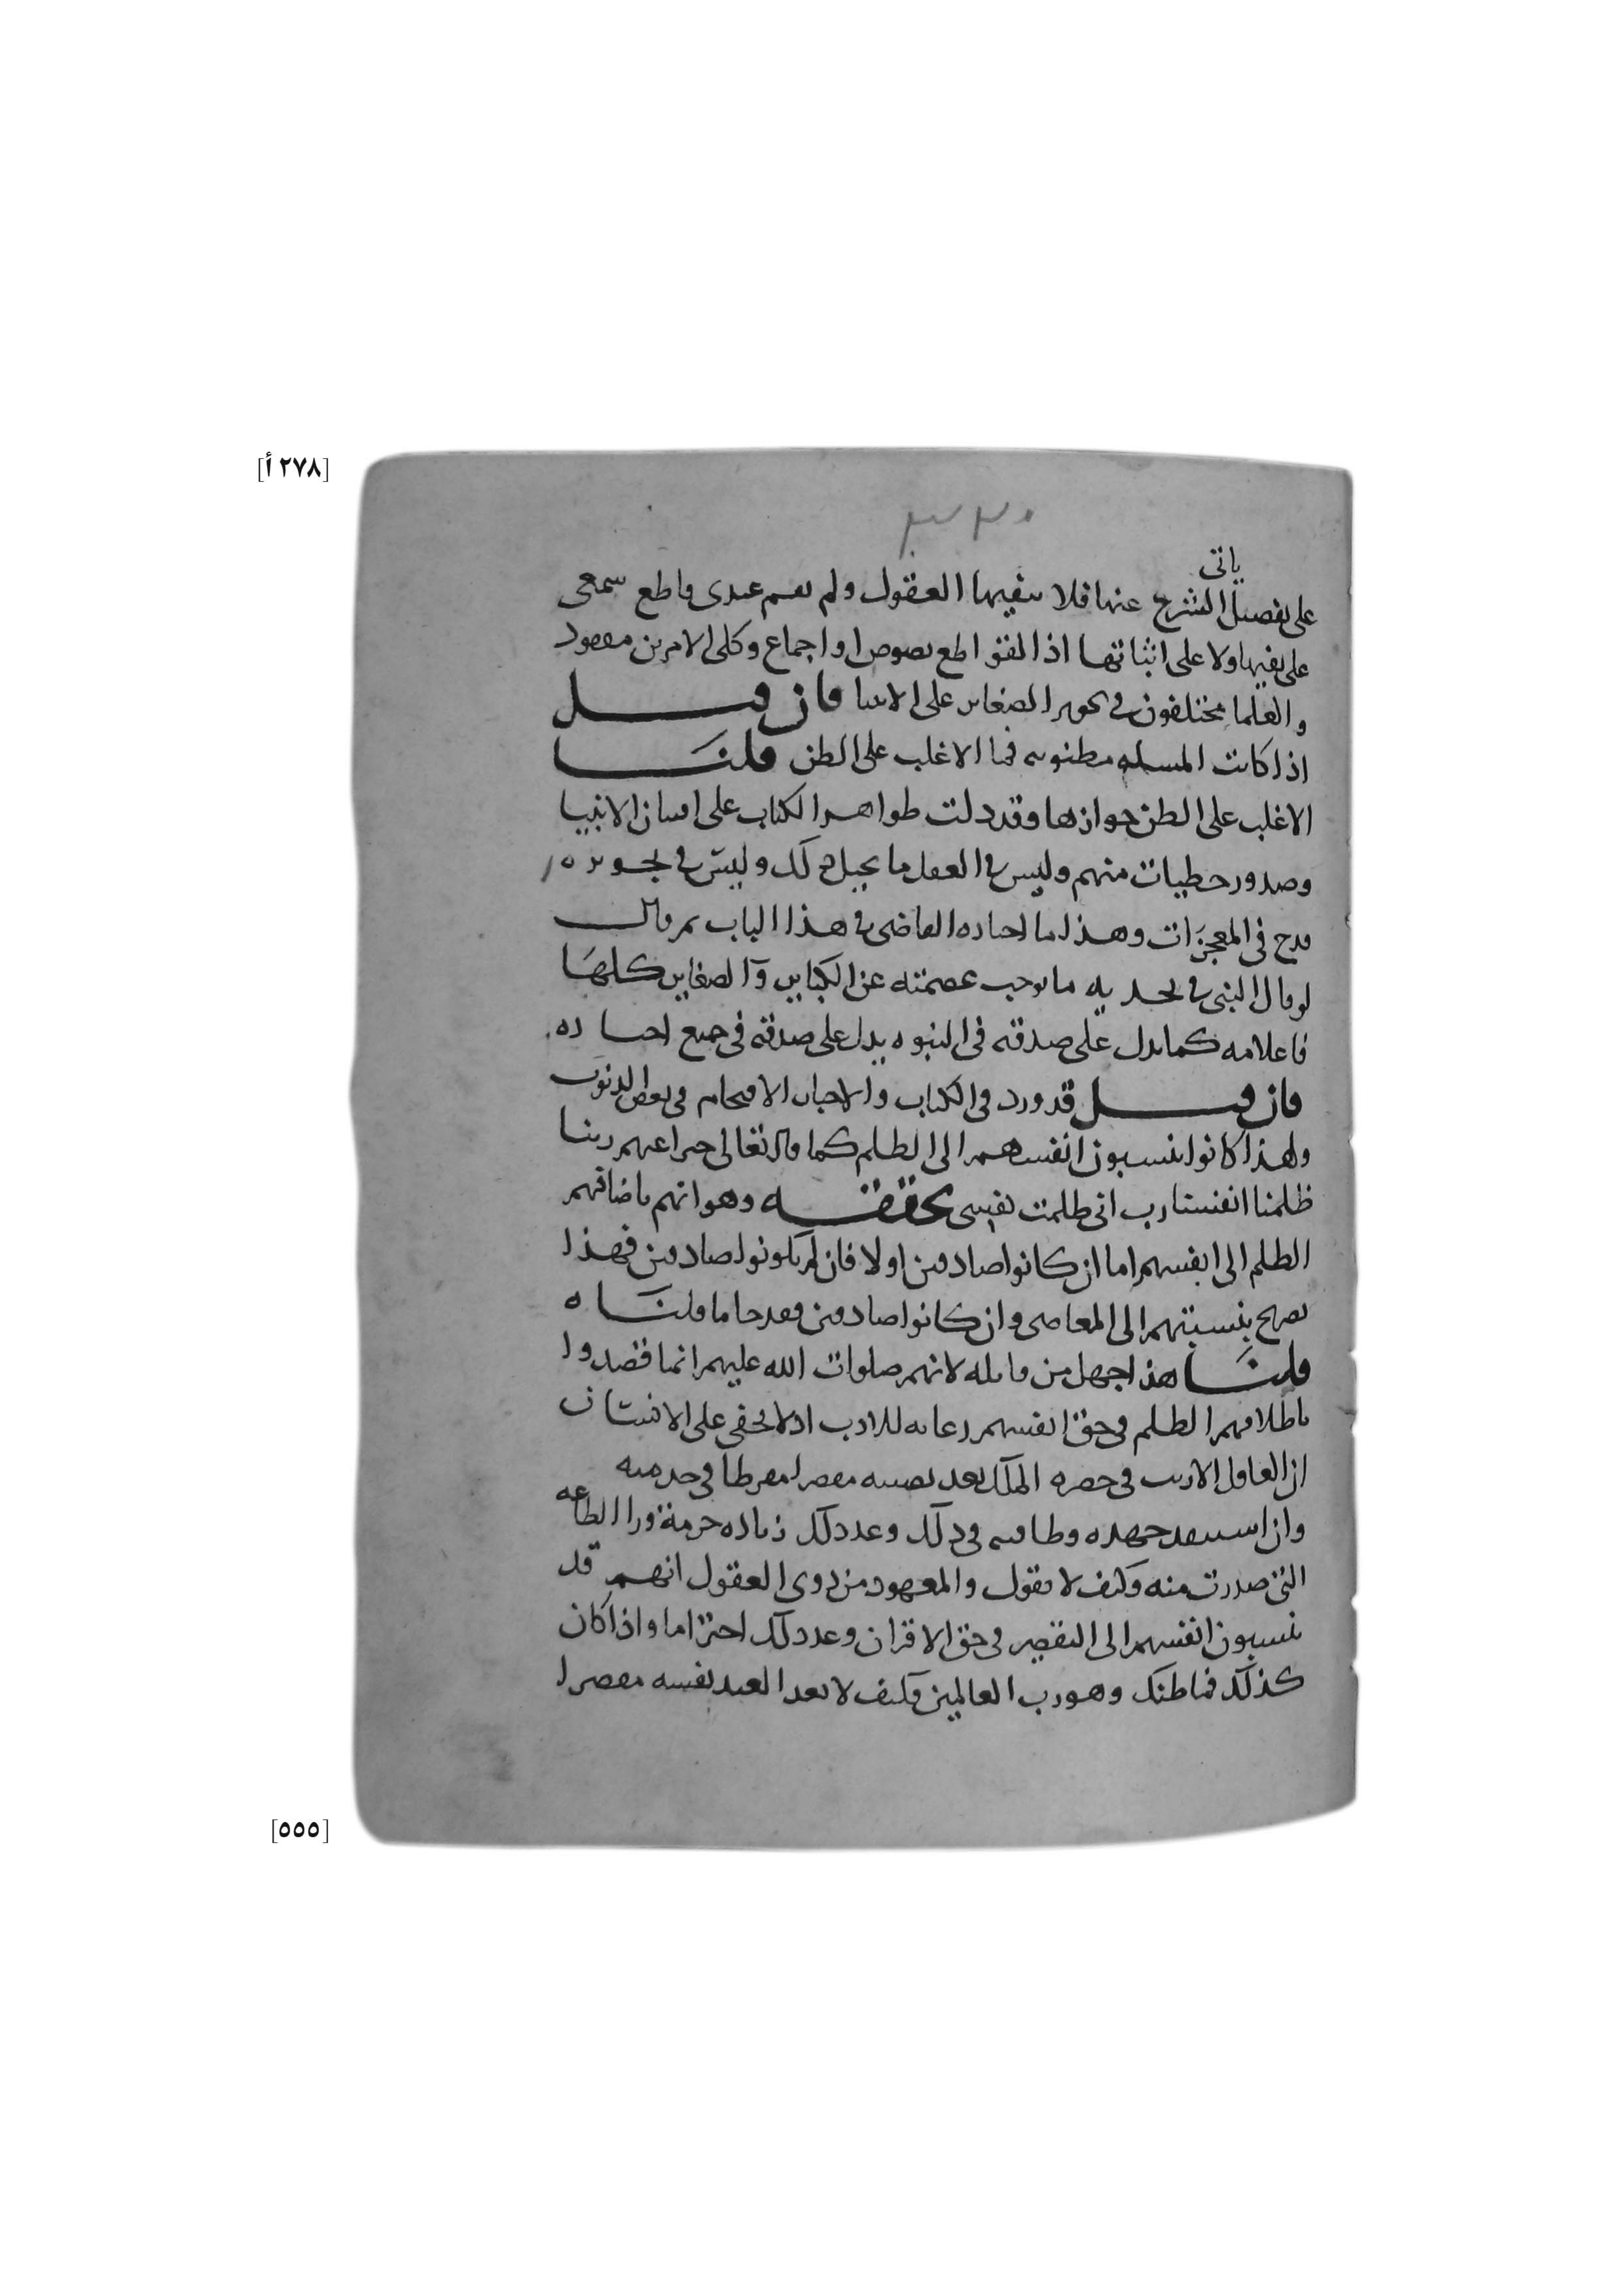 [٢٧٨ أ]
ياتى
على تفصيل الشرح عنها فلا تنفيها العقول ولم يقم عندى قاطع سمعى
على نفيها ولا على اثباتها اذ القواطع نصوص او اجماع وكلى الامرين مفقود
والعلما مختلفون فى تجويز الصغاير على الانبيا فان قيل
اذا كانت المسله مظنونه فما الاغلب على الظن قلنا
الاغلب على الظن جوازها وقد دلت ظواهر الكتاب على اتيان الانبيا
وصدور خطيات منهم وليس فى العقل ما يحيل ذلك وليس فى تجويزه
قدح فى المعجزات وهذا ما اختاره القاضى فى هذا الباب ثم قال
لو قال النبى فى تحديه ما يوجب عصمته عن الكباير والصغاير كلها
فاعلامه كما يدل على صدقه فى النبوه يدل على صدقه فى جميع اخباره
فان قيل قد ورد فى الكتاب والاخبار الاقتحام فى بعض الذنوب
ولهذا كانوا ينسبون انفسهم الى الظلم كما قال تعالى خبرا عنهم ربنا
ظلمنا انفسنا رب انى ظلمت نفسى تحققه وهو انهم باضافتهم
الظلم الى انفسهم اما ان كانوا صادقين او لا فان لم يكونوا صادقين فهذا
تصريح بنسبتهم الى المعاصى وان كانوا صادقين فقد جا ما قلناه
قلنا هذا جهل من قايله لانهم صلوات الله عليهم انما قصدوا
باطلاقهم الظلم فى حق انفسهم رعايه للادب اذ لا يخفى على الانسان
ان العاقل الاديب فى حضره الملك يعد نفسه مقصرا مفرطا فى خدمته
وان استنفد جهده وطاقته فى ذلك وعد ذلك زياده حرمة ورا الطاعه
التى صدرت منه وكيف لا نقول والمعهود من ذوى العقول انهم قد
ينسبون انفسهم الى التقصير فى حق الاقران وعد ذلك احتراما واذا كان
كذلك فما ظنك وهو رب العالمين فكيف لا يعد العبد نفسه مقصرا
[٥٥٥]